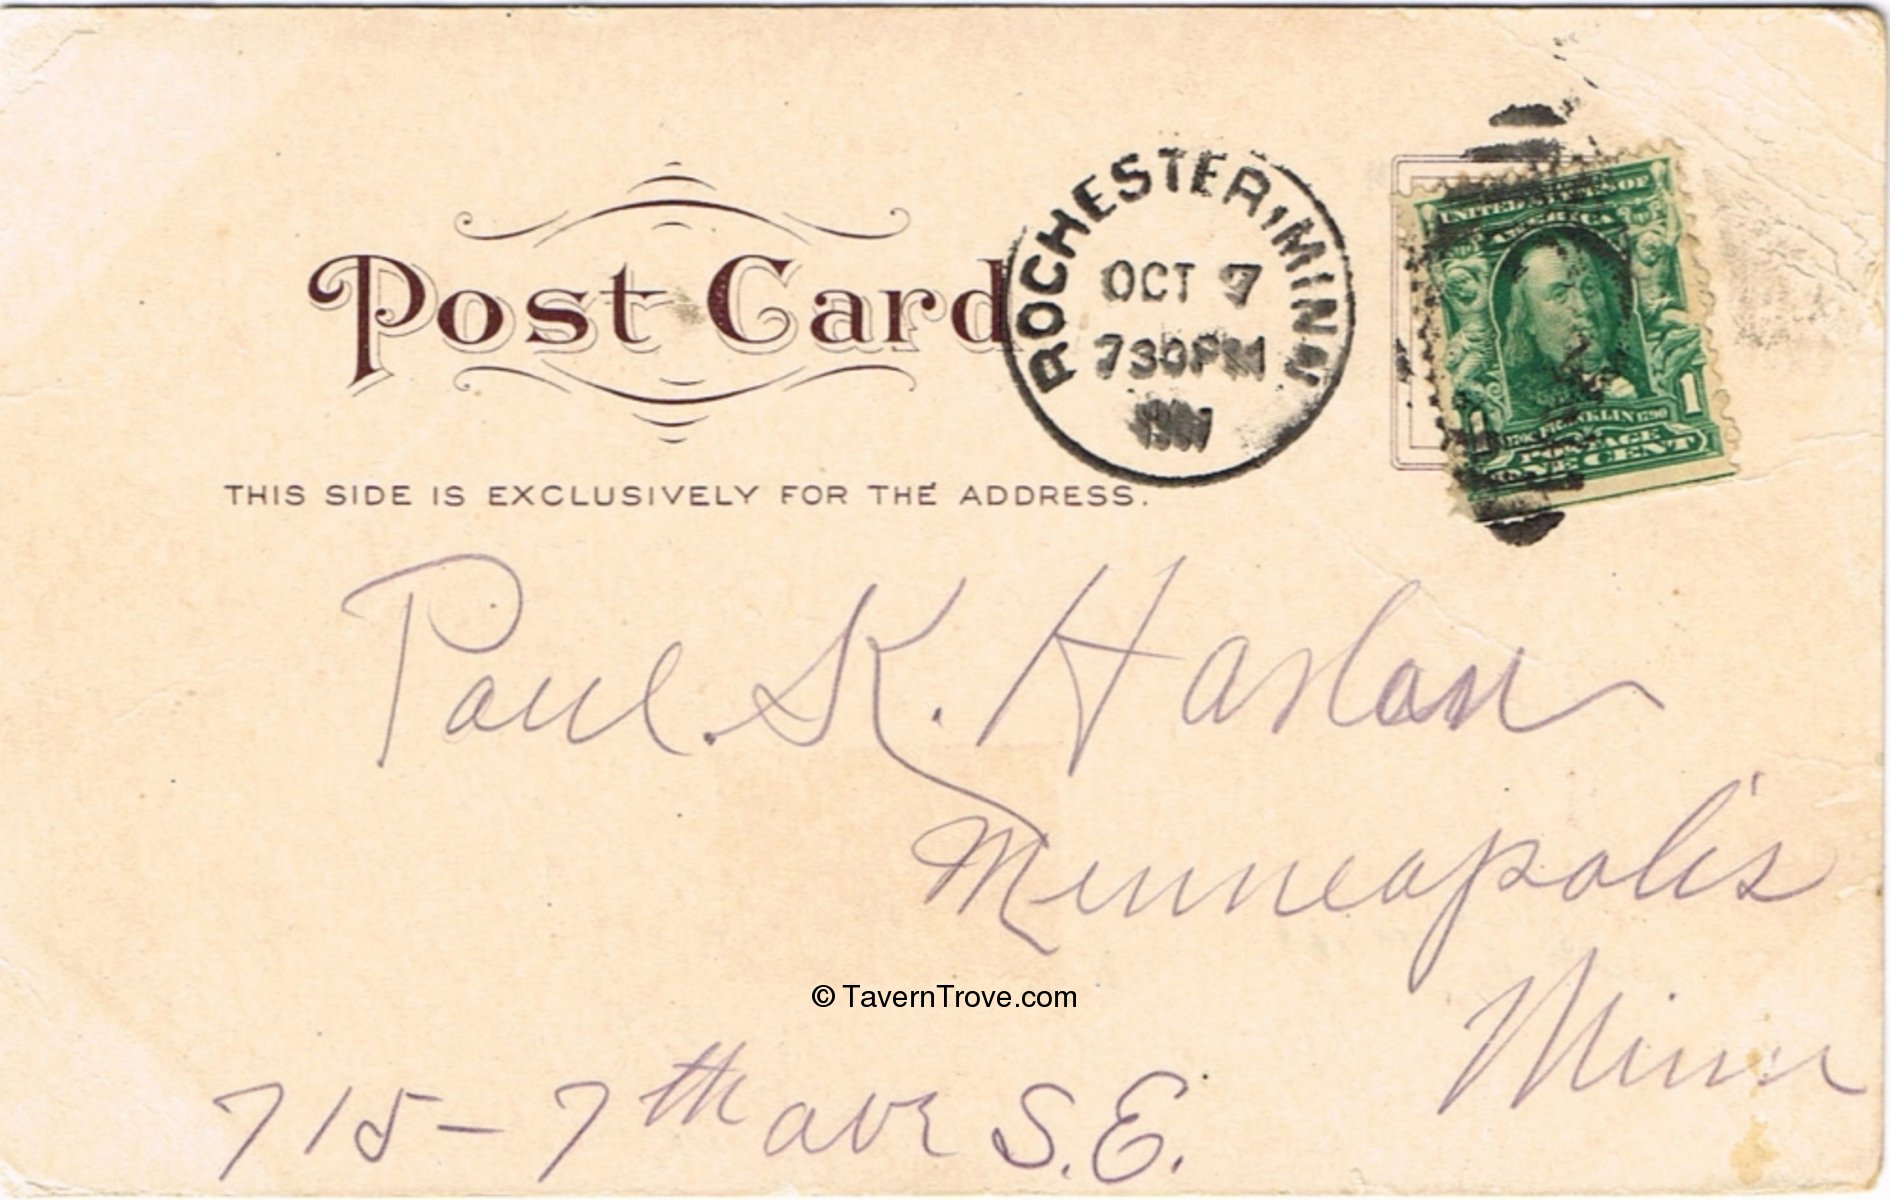 Post Card
ROCHESTER, MINN.
OCT 7
730PM
UNITED STATES OF
AMERICA
FRANKLIN 1790
POSTAGE
1 ONE CENT 1
THIS SIDE IS EXCLUSIVELY FOR THE ADDRESS.
Paul. K. Harlan
Minneapolis
Minn
© TavernTrove.com
715 - 7th ave S.E.